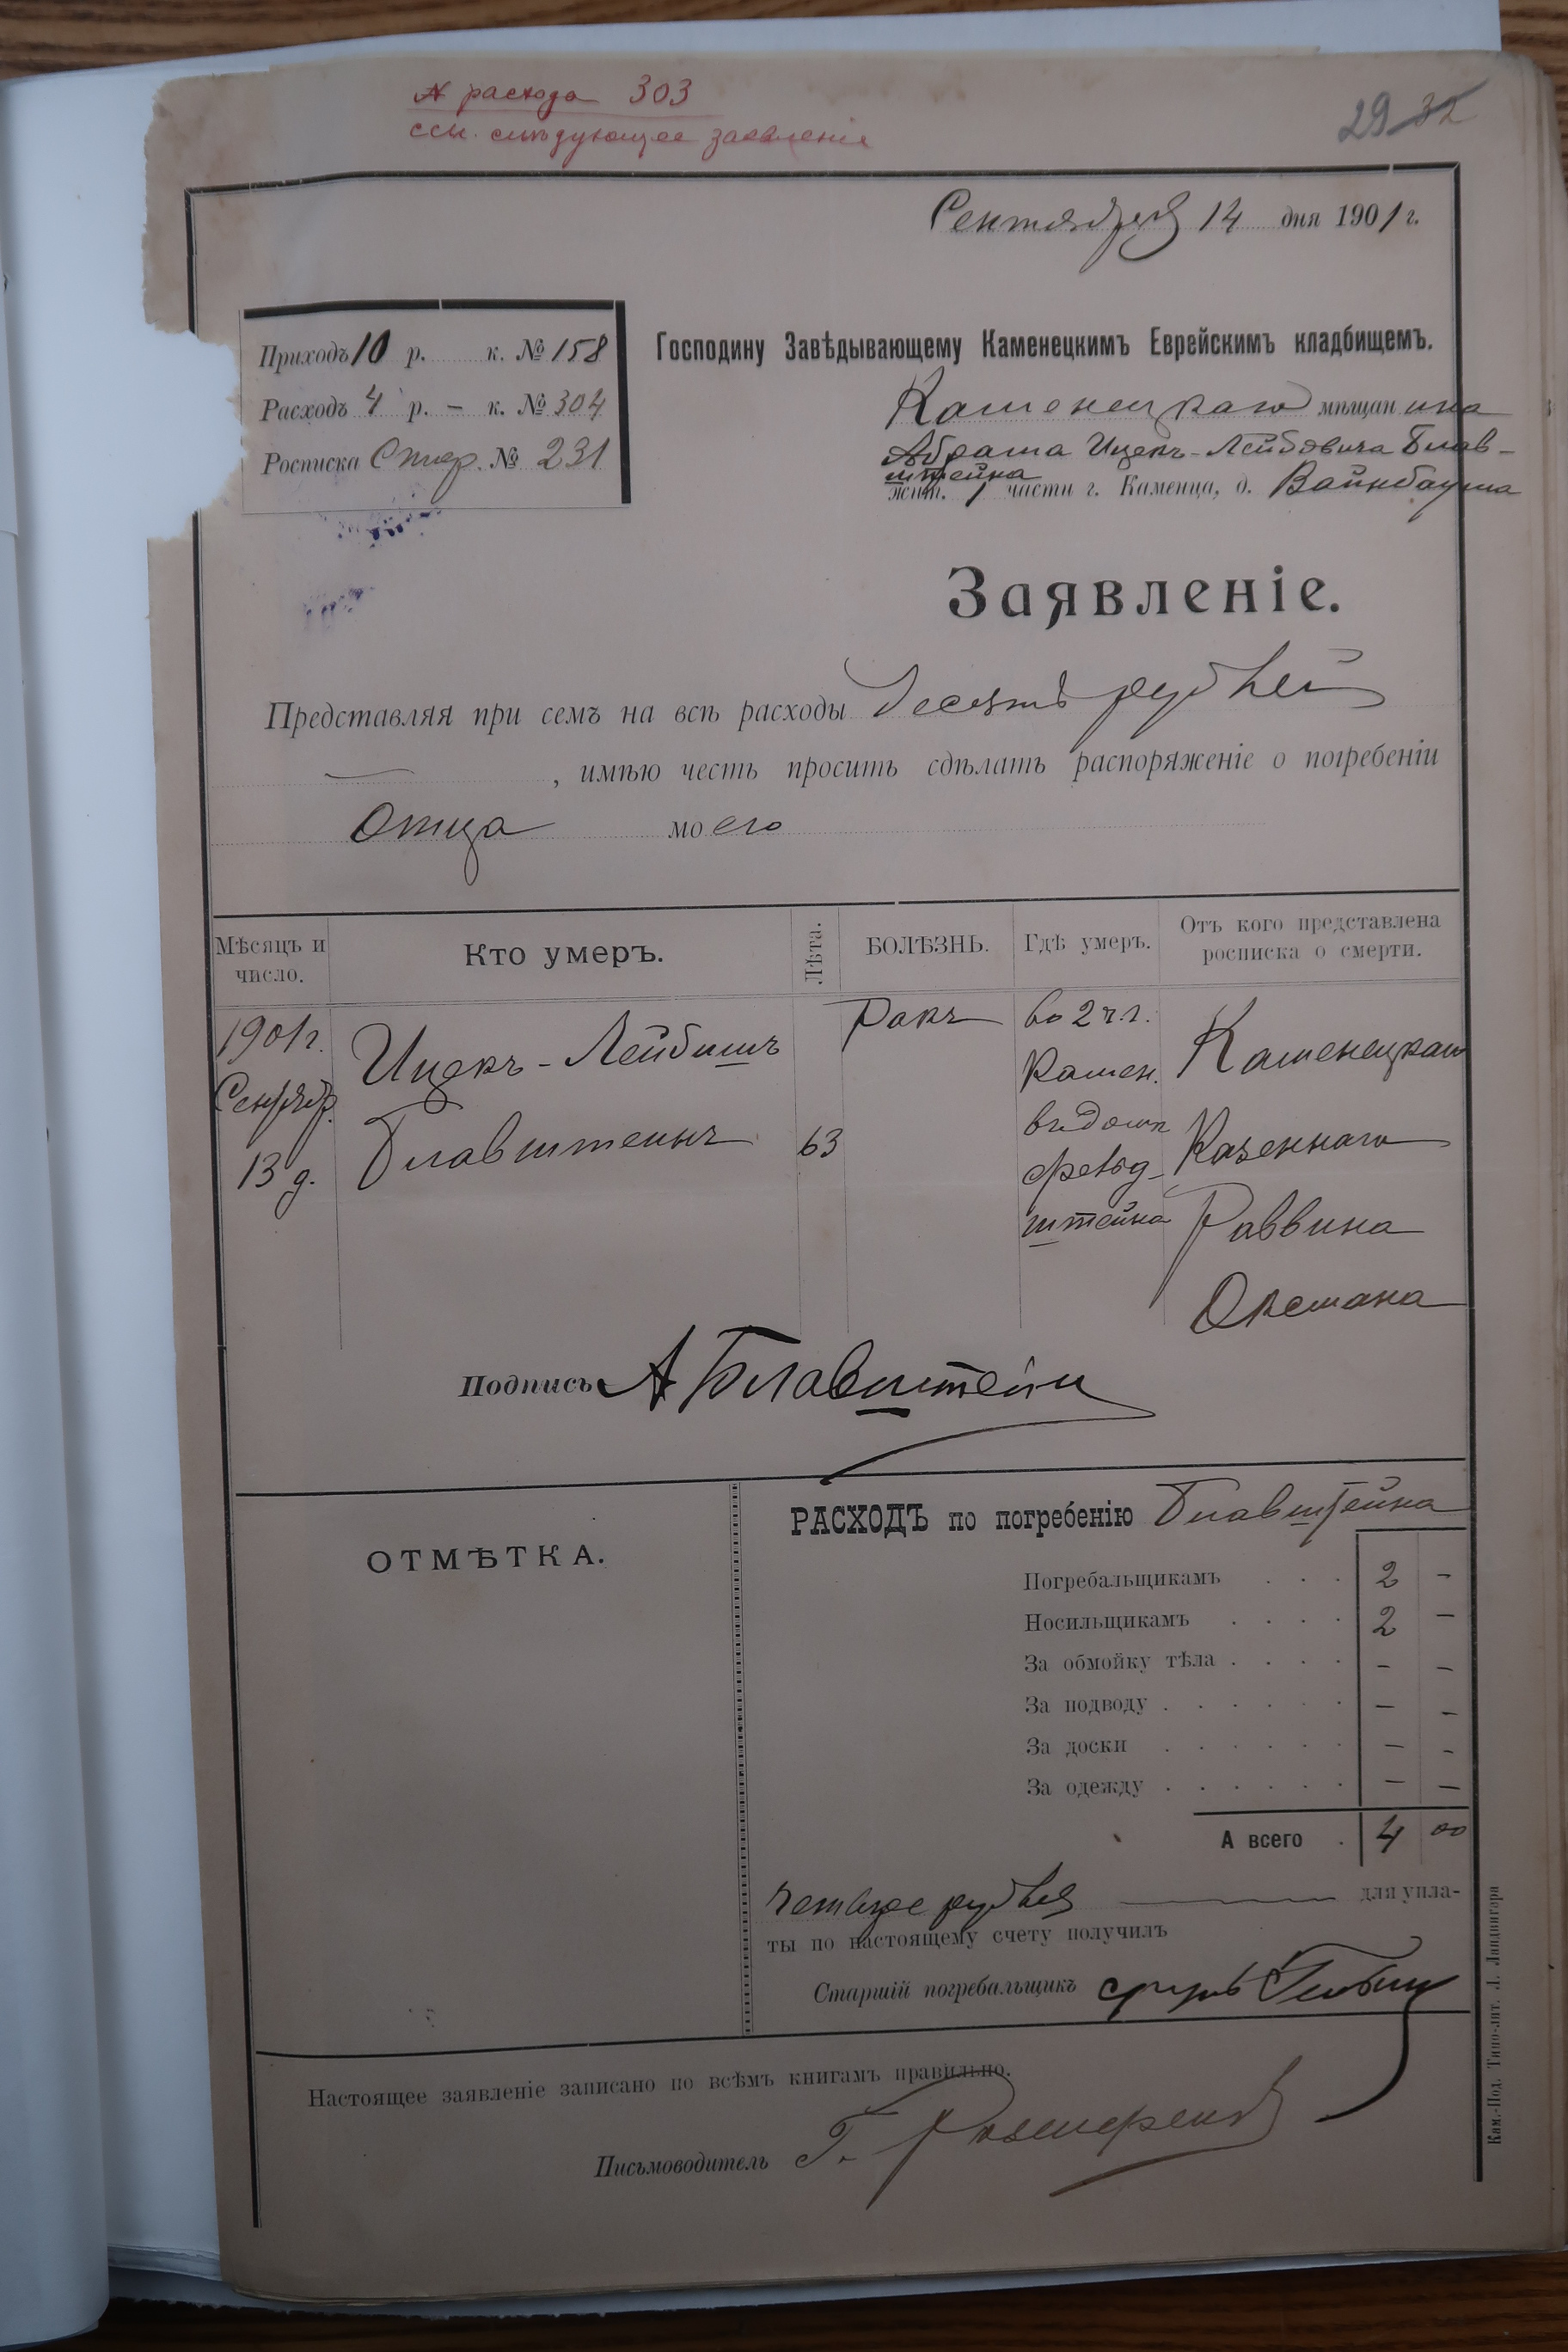 № расхода 303
см. следующее заявленiе
29 32
Сентября 14 дня 1901 г.
Приходъ 10 р. к. № 158
Расходъ 4 р. – к. № 304
Росписка Смер. № 231
Господину Завѣдывающему Каменецкимъ Еврейскимъ кладбищемъ.
Каменецкаго мѣщанина
Абрама Ицекъ-Лейбовича Блав-
штейна
жит. 1 части г. Каменца, д. Вайнбаума
Заявленіе.
Представляя при семъ на всѣ расходы Десять рублей
, имѣю честь просить сдѣлать распоряженіе о погребеніи
Отца моего
Мѣсяцъ и число.
Кто умеръ.
Лѣта.
БОЛѢЗНЬ.
Гдѣ умеръ.
Отъ кого представлена росписка о смерти.
1901 г.
Сентяб.
13 д.
Ицекъ-Лейбишъ
Блавштейнъ
63
Ракъ
во 2 ч. г.
Камен.
въ домѣ
штейна
Каменецкаго
Казеннаго
Раввина
Оксмана
Подпись А Блавштейн
ОТМѢТКА.
РАСХОДЪ по погребенію Блавштейна
Погребальщикамъ . . . 2 –
Носильщикамъ . . . . 2 –
За обмойку тѣла . . . . – –
За подводу . . . . . . – –
За доски . . . . . . – –
За одежду . . . . . . – –
А всего . 4 00
четыре рубля для упла-
ты по настоящему счету получилъ
Старшій погребальщикъ
Настоящее заявленіе записано по всѣмъ книгамъ правильно.
Письмоводитель Г.
Кам.-Под. Типо-лит. Л. Ландвигера